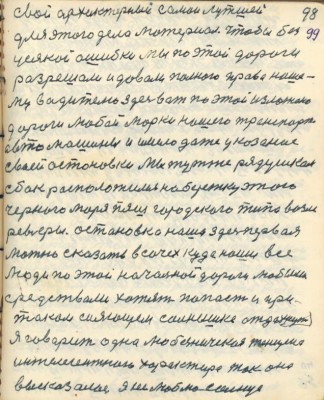 свой архиктерный самой лутшей 98
для этого дело материал. Чтобы без 99
всякой ошибки мы по этой дороги
разрешаем и довам полного права наше-
му водителю здесват по этой
дороги любой марки нашего транспорт
авто машины и имело дате указание
своей остоновки мы тут же рядушкам
сбок расположилися на бережку этого
черного моря пляш городского типо возле
ревьеры. остановка наша здес первая
можно сказать в сочех куда наши все
люди по этой началной дороги любыми
средствами хотят попаст и при
таком сияющем солнышке отдохнут
Я говарит одна любеничная тищина
интелегентного характера так она
высказалас я не люблю солнце